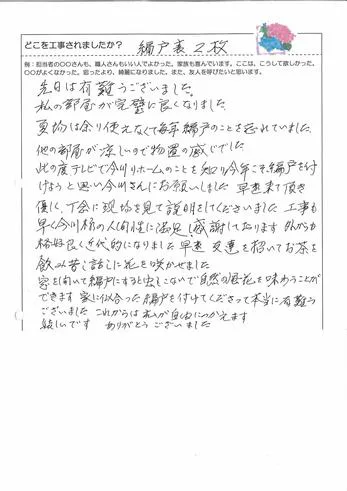 どこを工事されましたか？ 網戸表2枚
例：担当者の〇〇さんも、職人さんもいい人でよかった。家族も喜んでいます。ここは、こうして欲しかった。
〇〇がよくなかった。思ったより、綺麗になりました。また、友人を呼びたいと思います。
先日は有難うございました。
私の部屋が完璧に良くなりました。
夏場は余り使えなくて毎年網戸のことを忘れていました。
他の部屋が涼しいので物置の感じでした。
此の度テレビで今川リホームのことを知り今年こそ網戸を付
けようと思い今川さんにお願いしました 早速来て頂き
優しく丁寧に現場を見て説明をしてくださいました 工事も
早く今川様の人間性に満足、感謝しております
格好良く近代的になりました 早速 友達を招いてお茶を
飲み話しに花を咲かせました
窓を開いて網戸にすると虫もこないで自然の風花を味わうことが
できます 家に似合った網戸を付けてくださって本当に有難う
ございました これからは
嬉しいです ありがとうございました